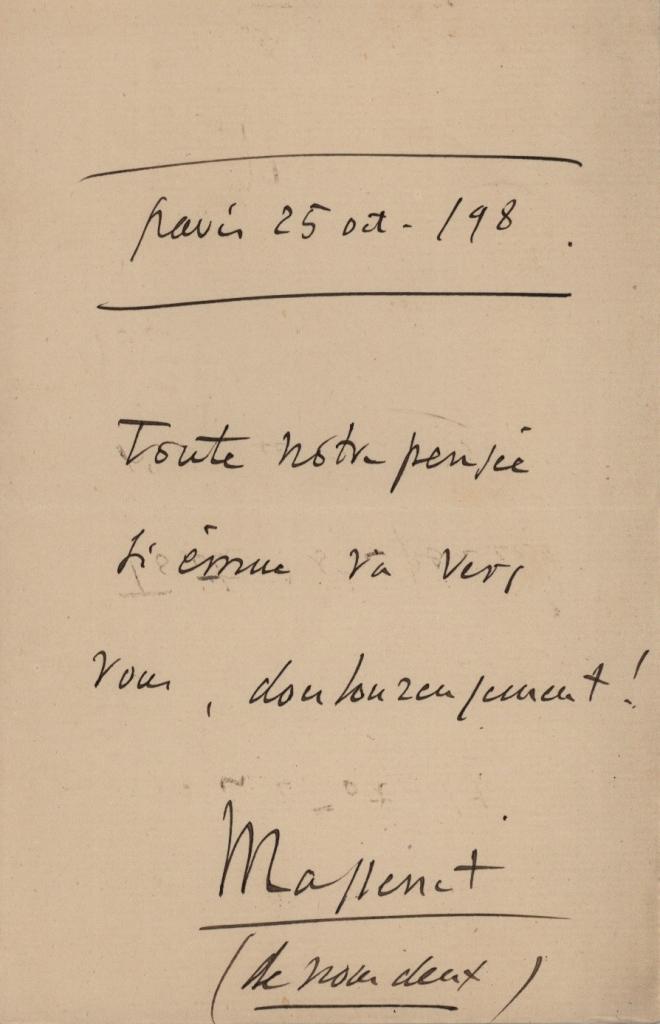 Paris 25 oct - /98.
Toute notre pensée
si émue va vers
vous, douloureusement !
Massenet
(de nous deux)